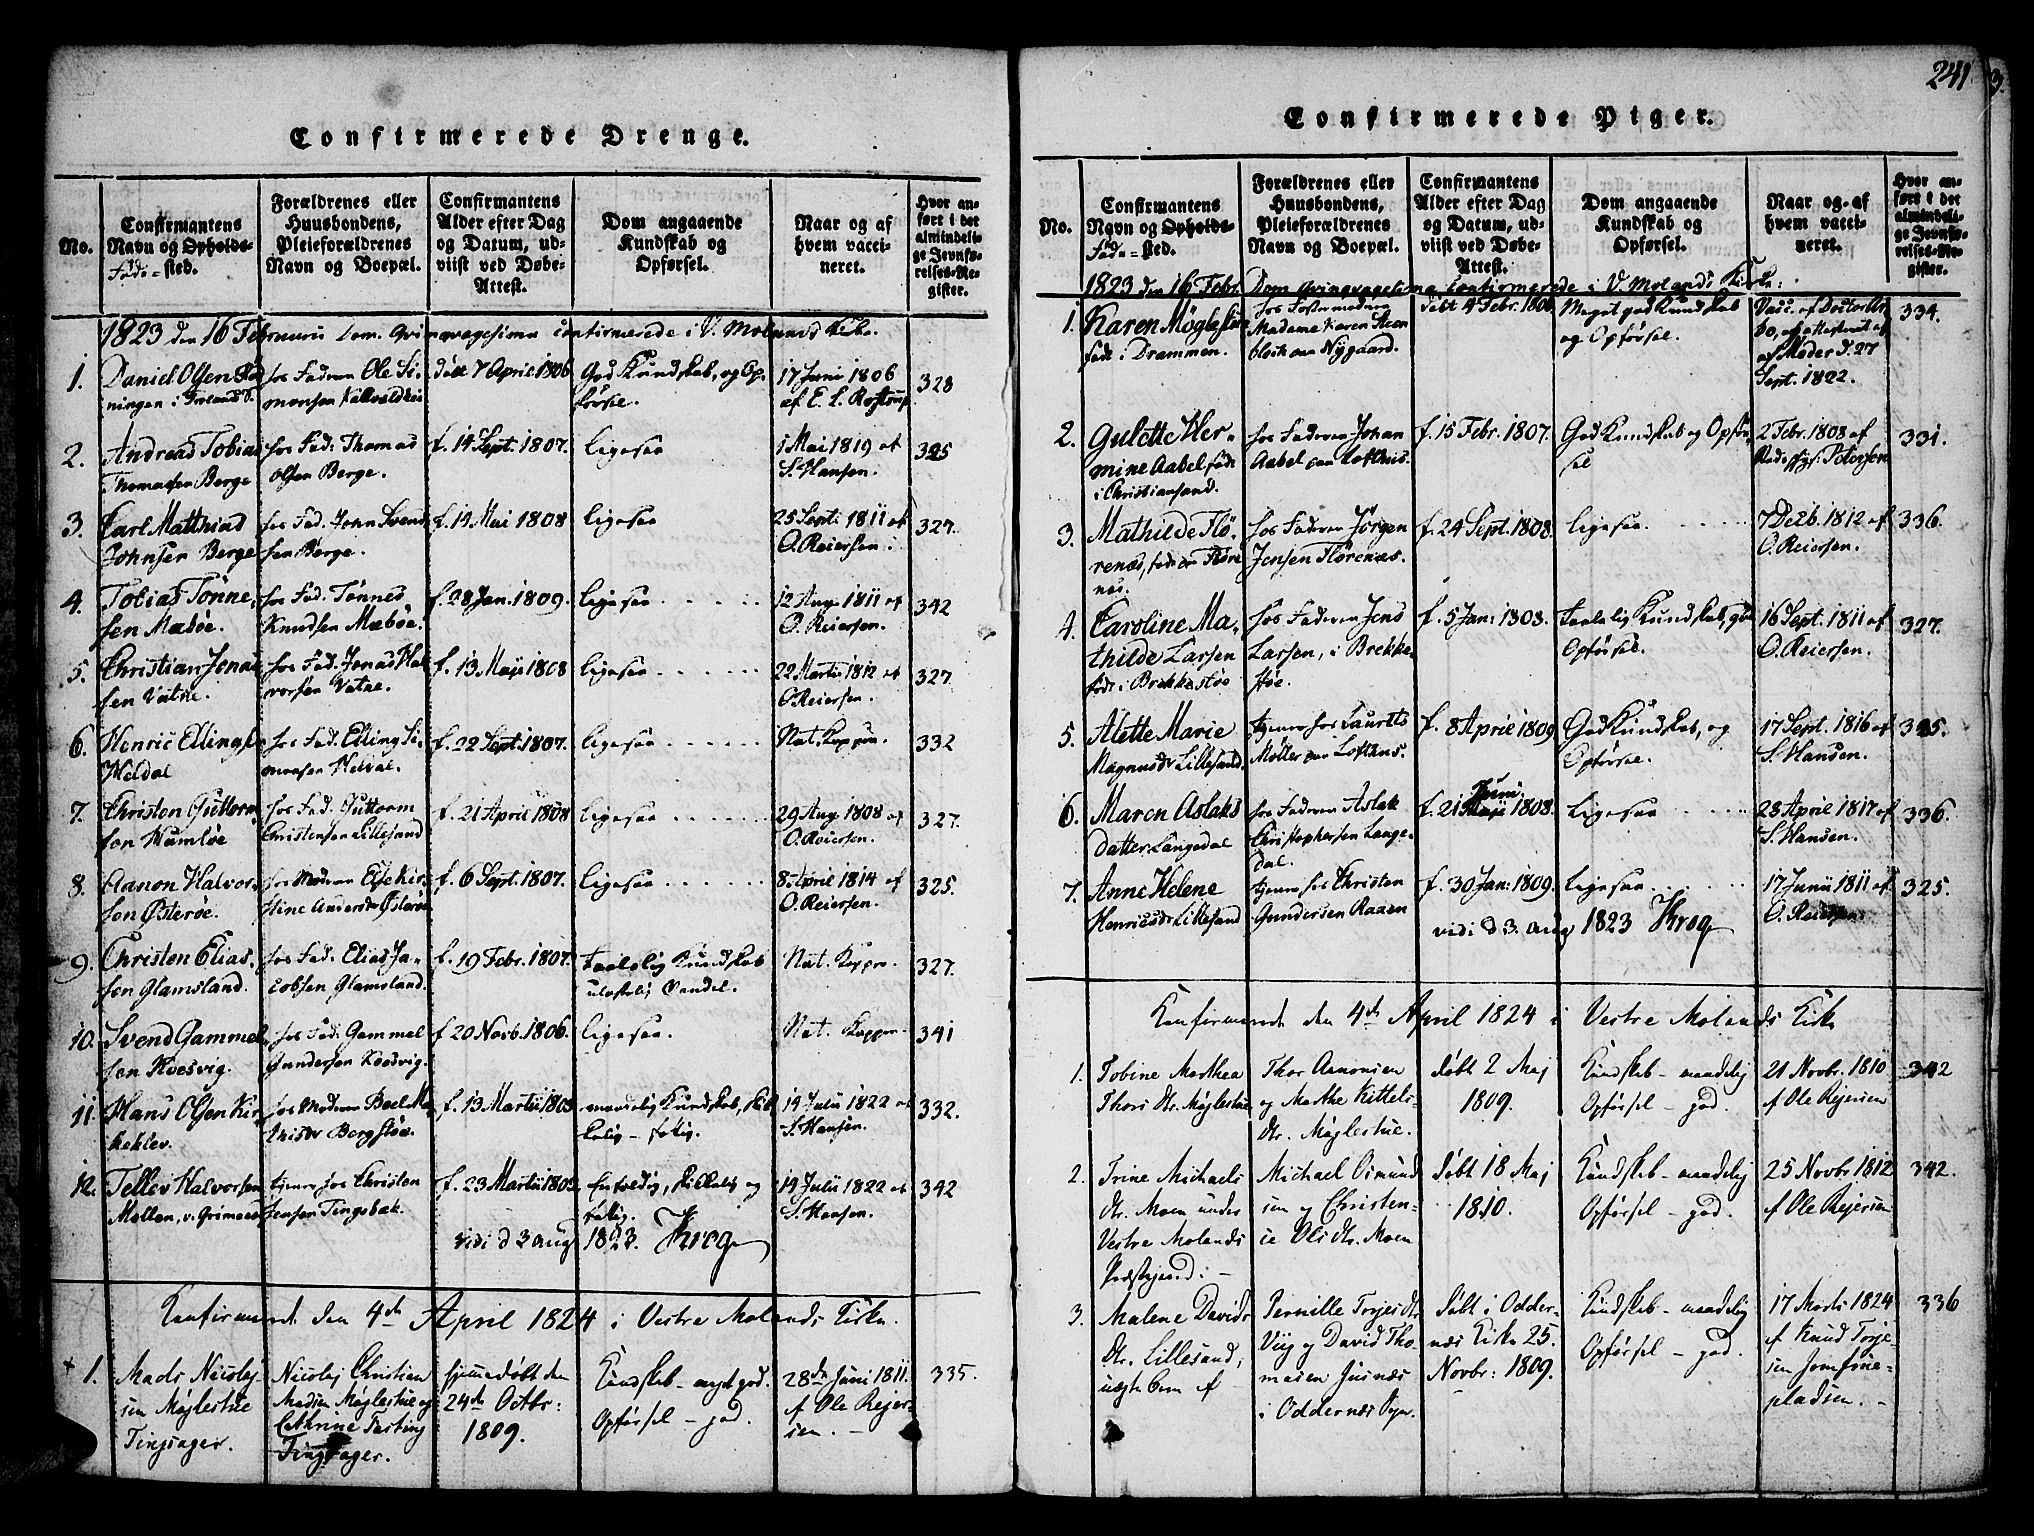 Confirmerede Drenge.
No.
Confirmantens
Navn og Opholds-
Føde-sted.
Forældrenes eller
Huusbondens,
Pleieforældrenes
Navn og Boepæl.
Confirmantens
Alder efter Dag
og Datum, ud-
viist ved Døbe-
Attest.
Dom angaaende
Kundskab og
Opførsel.
Naar og af
hvem vacci-
neret.
Hvor an-
ført i det
almindeli-
ge Jevnfø-
relses-Re-
gister.
1823 den 16 Februarii Dom. Qvinqvagesima confirmerede i V. Molands Kirke.
1. Daniel Olsen
hos Faderen Ole Si-
monsen
døbt 7 April 1806
God Kundskab, og Op-
førsel.
17 Juni 1806
af E. L. Rostrup
328
2. Andreas Tobias
Thomassen Berge
hos Fad: Thomas
Olsen Berge.
f. 14 Sept. 1807.
ligesaa
1 Mai 1819 af
S. Hansen.
325
3. Carl Matthias
Johnsen Berge
hos Fad. John Svend-
sen Berge.
f. 14 Mai 1808
ligesaa
25 Sept: 1811 af
O. Reiersen.
327.
4. Tobias Tønne-
sen Mæbøe.
hos Fad. Tønnes
Knudsen Mæbøe.
f. 28 Jan. 1809.
ligesaa
12 Aug 1811 af
O. Reiersen.
342
5. Christian Jonas-
sen Vatne.
hos Fad. Jonas Hal-
vorsen Vatne.
f. 13 Maji 1808
ligesaa
22 Martii 1812 af
O Reiersen.
327
6. Henric Ellings.
Heldal
hos Fad. Elling Si-
monsen Heldal.
f. 22 Sept. 1807.
ligesaa
Nat. Kopper.
332
7. Christen Guttorm-
sen Humløe
hos Fad. Guttorm
Christensen Lillesand
f. 21 April 1808
ligesaa
29 Aug 1808 af
O. Reiersen.
327.
8. Aanon Halvor-
sen Østerøe.
hos Moderen
stine Andersdr Østerøe
f. 6 Sept. 1807.
ligesaa
8 April 1814 af
O. Reiersen.
325.
9. Christen Elias-
sen Glamsland.
hos Fad. Elias Ja-
cobsen Glamsland.
f. 19 Febr. 1807.
Taalelig Kundskab
ulastelig Vandel.
Nat. Kopper.
327.
10. Svend Gammel-
sen Kosvig.
hos Fad: Gammel
Gundersen Kosvig.
f. 20 Novb. 1806.
ligesaa.
Nat. Kopper
341
11. Hans Olsen Kir-
keklev.
hos Moderen Boel Ma-
thisdr Bergstøe.
f. 13 Martii 1805
maadelig Kundskab, skik-
kelig-
14 Julii 1822 af
S. Hansen.
332.
12. Tellev Halvorsen
Mollen,
tjener hos Christen
Jensen Tingsbak.
f. 23 Martii 1805
Eenfoldig, skikkelig og
14 Julii 1822 af
S. Hansen.
342
vidi d 3 aug 1823. Krog
Konfirmeret den 4de April 1824 i Vestre Molands Kirke.
1. Mads Nicolej
sen Møglestue
Tingsager.
Nicolej Christian
Madsen Møglestue og
Cathrine
Tingsager.
hjemmedøbt den
24de Octbr:
1809.
Kundskab - meget god.
Opførsel - god.
28de Juni 1811.
af Ole Rejer-
sen. -
335.
241
Confirmerede Piger.
No.
Confirmantens
Navn og Opholds-
Føde-sted.
Forældrenes eller
Huusbondens,
Pleieforældrenes
Navn og Boepæl.
Confirmantens
Alder efter Dag
og Datum, ud-
viist ved Døbe-
Attest.
Dom angaaende
Kundskab og
Opførsel.
Naar og af
hvem vacci-
neret.
Hvor an-
ført i det
almindeli-
ge Jevnfø-
relses-Re-
gister.
1823 den 16 Febr. Dom Qvinqvagesima confirmerede i V. Molands Kirke:
1. Karen Møglestue
født i Drammen.
hos Fostermoderen
Madame Karen Steen-
block paa Nygaard.
døbt 4 Febr. 1806
Meget god Kundskab
og Opførsel.
Vacc. af Doctor
bo, og attesteret af
af Møder d. 27
Sept. 1822.
334.
2. Gulette Her-
mine Aabel født
i Christiansand.
hos Faderen Johan
Aabel paa Lofthus.
f. 15 Febr. 1807.
God Kundskab og Opfør-
sel
2 Febr. 1808 af
Petersen
331.
3. Mathilde Flø-
renæs, født paa Fløre-
næs.
hos Faderen Jørgen
Jensen Flørenæs.
f. 24 Sept. 1808.
ligesaa
7 Decb. 1812 af
O. Reiersen.
336.
4. Caroline Ma-
thilde Larsen
født i Brekkestøe
hos Faderen Jens
Larsen, i Brekke-
støe.
f. 5 Jan: 1808.
Taalelig Kundskab, god
Opførsel.
16 Sept. 1811 af
O. Reiersen.
327.
5. Alette Marie
Magnusdr Lillesand.
tjener hos Laurits
Møller paa Lofthus.
f. 8 April 1809
God Kundskab, og
Opførsel.
17 Sept. 1816 af
S. Hansen.
325.
6. Maren Aslaks
datter Langedal
hos Faderen Aslak
Christophersen Lange-
dal.
Junii
f. 21 Maji 1808.
ligesaa
28 April 1817 af
S. Hansen.
336.
7. Anne Helene
Henricsdr Lillesand
tjener hos Christen
Gundersen Raaen
f. 30 Jan: 1809.
ligesaa
17 Junii 1811 af
O. Reiersen
325.
vidi d 3. aug 1823 Krog
Konfirmeret den 4de April 1824 i Vestre Molands Kirke
1. Tobine Marthea
Thors Dr. Møglestue
Thor Aanonsen
og Marthe Kittels-
Dr. Møglestue.
døbt 2 Maj
1809.
Kundskab - maadelig
Opførsel - god.
21 Novbr. 1810
af Ole Rejersen
342
2. Trine Michaels
Dr. Moen under
Vestre Molands
Præstegjeld. -
Michael Osmund-
sen og Christen-
ie Olsdtr. Moen
døbt 18 Maj
1810.
Kundskab - maadelig
Opførsel - god.
25 Novbr 1812
af Ole Rejersen
342.
3. Malene Davids
Dr. Lillesand,
uægte Barn af -
Pernille Torjes Dr.
Viig og David Tho-
masen Justnæs
i Oddernæs Sogn.
døbt i Odder-
næs Kirke 25.
Novbr: 1809.
Kundskab - maadelig
Opførsel - god.
17 Marts 1824
af Knud Torje-
sen Jomfrue-
pladsen. -
336